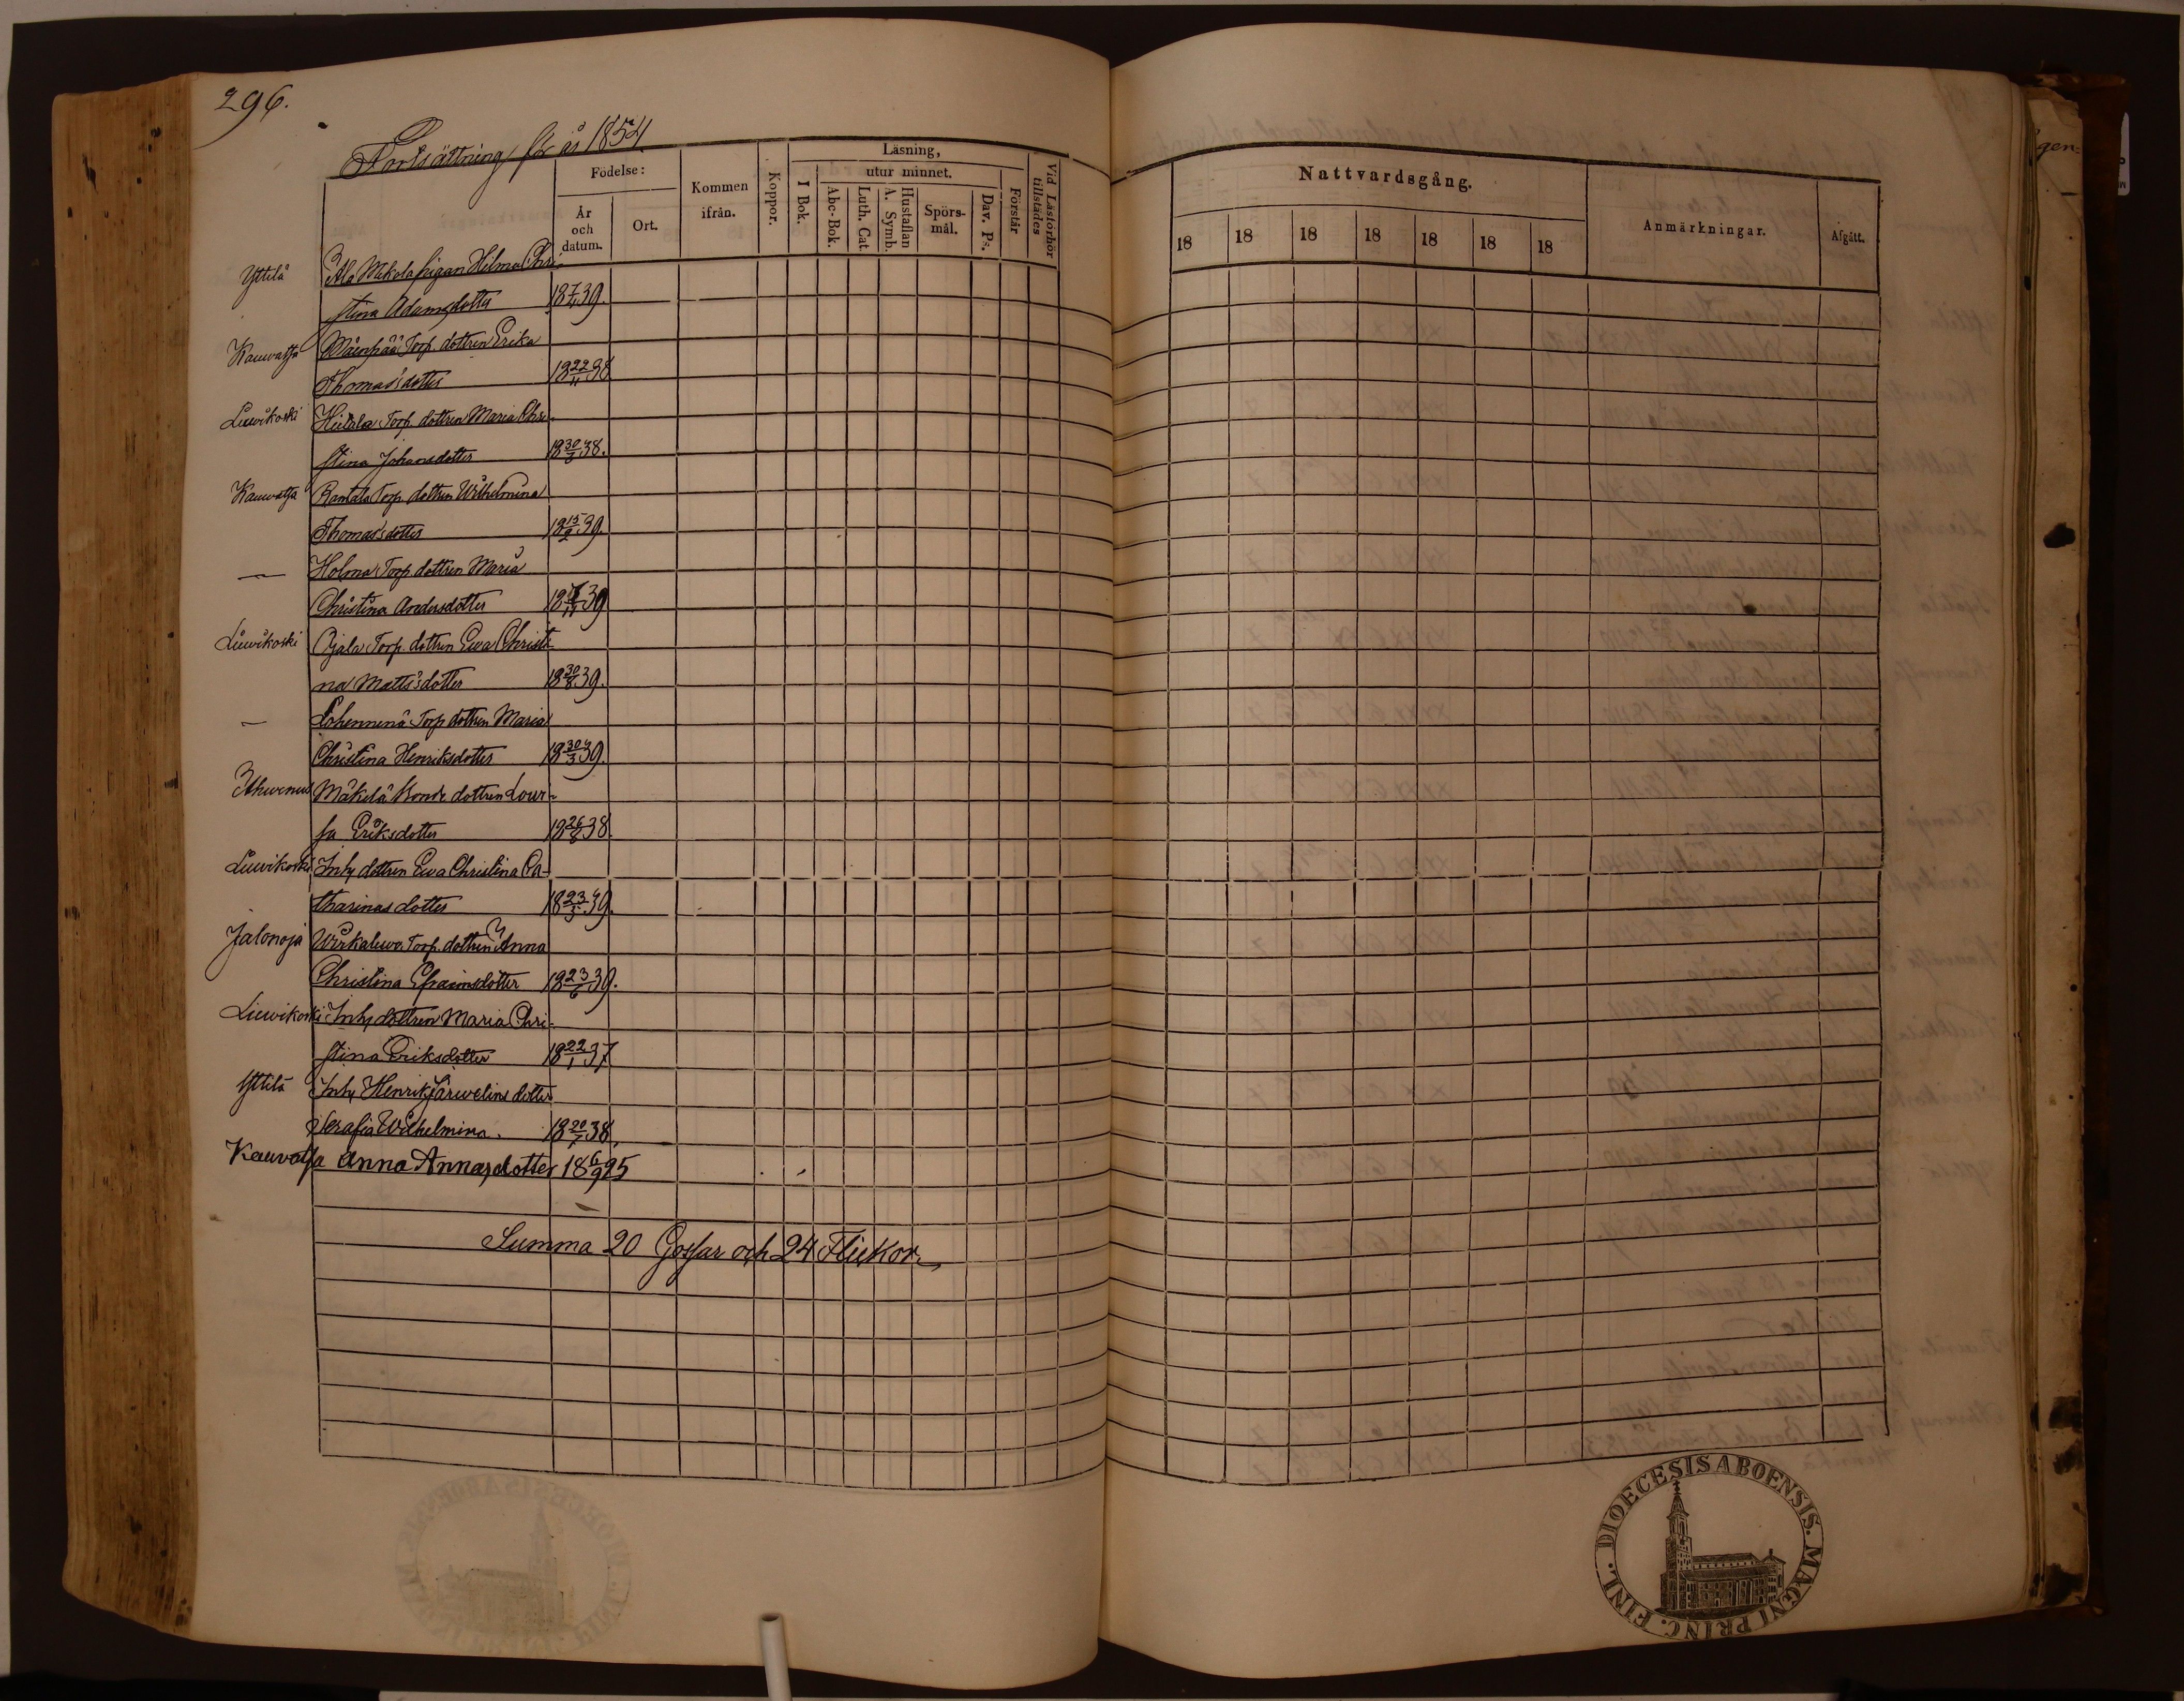 296.
Fortsättning för år 1854
Födelse:
År och datum.
Ort.
Kommen ifrån.
Koppor.
Läsning,
utur minnet.
I Bok.
Abc-Bok.
Luth. Cat.
Hustaflan A. Symb.
Spörs-mål.
Dav. Ps.
Förstår
Vid Läsförhör tillstädes
Nattvardsgång.
18 18 18 18 18 18 18
Anmärkningar.
Afgått.
Yttilä Ala Mikola pigan Hilma Chri-
stina Adamsdotter 39.
Kauvatsa Mäenpää Torp. dottren Erika
Thomasdotter 18 22/11 38
Liuvikoski Heikkilä Torp. dottren Maria Chri-
stina Johansdotter 18 30/3 38.
Kauvatsa Rantala Torp. dottren Wilhelmina
Thomasdotter 18 15/2 39.
— Holma Torp dottren Maria
Christina Andersdotter 39
Liuvikoski Ojala Torp. dottren Ewa Christi-
na Mattsdotter 18 30/8 39.
— Torp dottren Maria
Christina Henriksdotter 18 30/3 39.
Mäkelä Bonde dottren Lovi-
sa Eriksdotter 18 26/8 38.
Liuvikoski Inhy dottren Ewa Christina Ca-
tharinasdotter 18 23/3 39.
Jalonoja Torp. dottren Anna
Christina Efraimsdotter 18 23/6 39.
Liuvikoski Inhy dottren Maria Chri-
stina Eriksdotter 18 22/1 37
Yttilä Inhy Henrik Järvelins dotter
Serafia Wilhelmina. 38
Kauvatsa Anna Annasdotter 18 6/9 25
Summa 20 Gossar och 24 Flickor
DIOECESIS ABOENSIS. MAGNI PRINC. FINL.
gen: